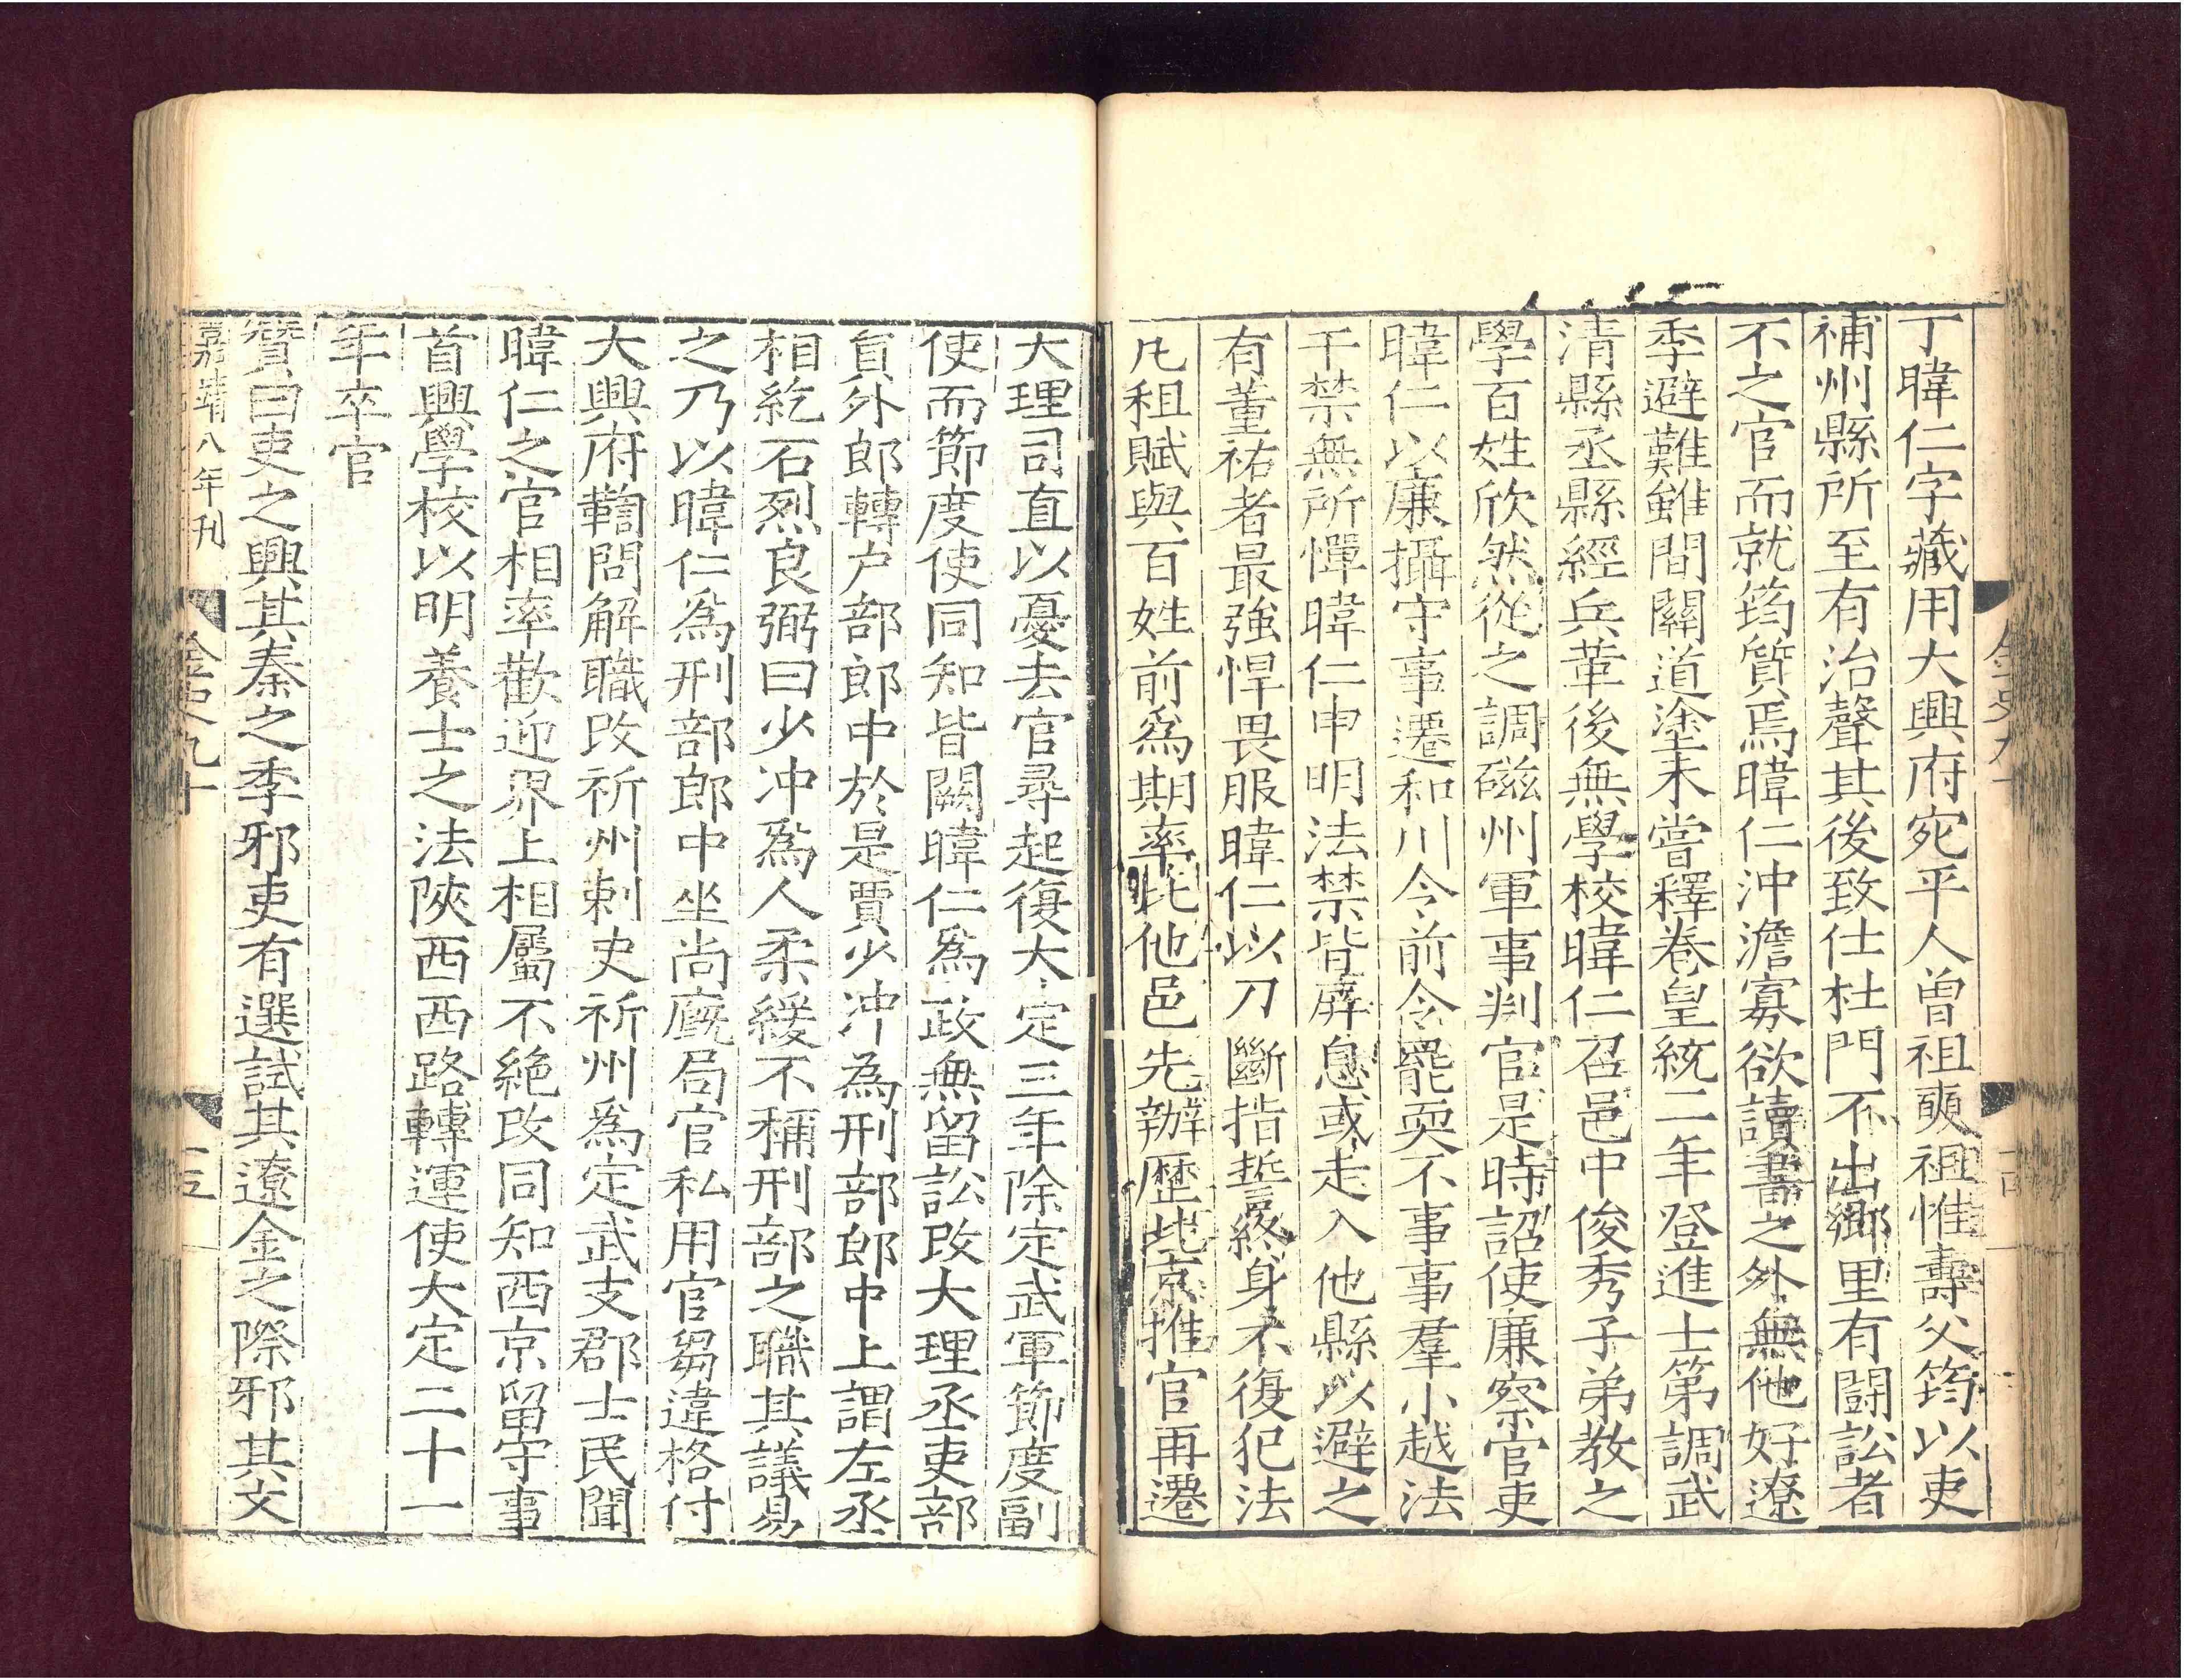 丁暐仁字藏用大興府宛平人曾祖奭祖惟壽父筠以吏
補州縣所至有治聲其後致仕杜門不出鄉里有鬪訟者
不之官而就筠質焉暐仁沖澹寡欲讀書之外無他好遼
季避難雖間關道塗未嘗釋卷皇統二年登進士第調武
清縣丞縣經兵革後無學校暐仁召邑中俊秀子弟教之
學百姓欣然從之調磁州軍事判官是時詔使廉察官吏
暐仁以廉攝守事遷和川令前令罷耎不事事羣小越法
干禁無所憚暐仁申明法禁皆屏息或走入他縣以避之
有董祐者最強悍畏服暐仁以刀斷指誓終身不復犯法
凡租賦與百姓前為期率比他邑先辦歷北京推官再遷
金史九十
十四
大理司直以憂去官尋起復大定三年除定武軍節度副
使而節度使同知皆闕暐仁爲政無留訟改大理丞吏部
貟外郎轉户部郎中於是賈少沖為刑部郎中上謂左丞
相紇石烈良弼曰少沖爲人柔緩不稱刑部之職其議易
之乃以暐仁爲刑部郎中坐尚廐局官私用官芻違格付
大興府鞫問解職改祈州刺史祈州爲定武支郡士民聞
暐仁之官相率歡迎界上相屬不絶改同知西京留守事
首興學校以明養士之法陝西西路轉運使大定二十一
年卒官
贊曰吏之興其秦之季邪吏有選試其遼金之際邪其文
嘉靖八年刊
金史九十